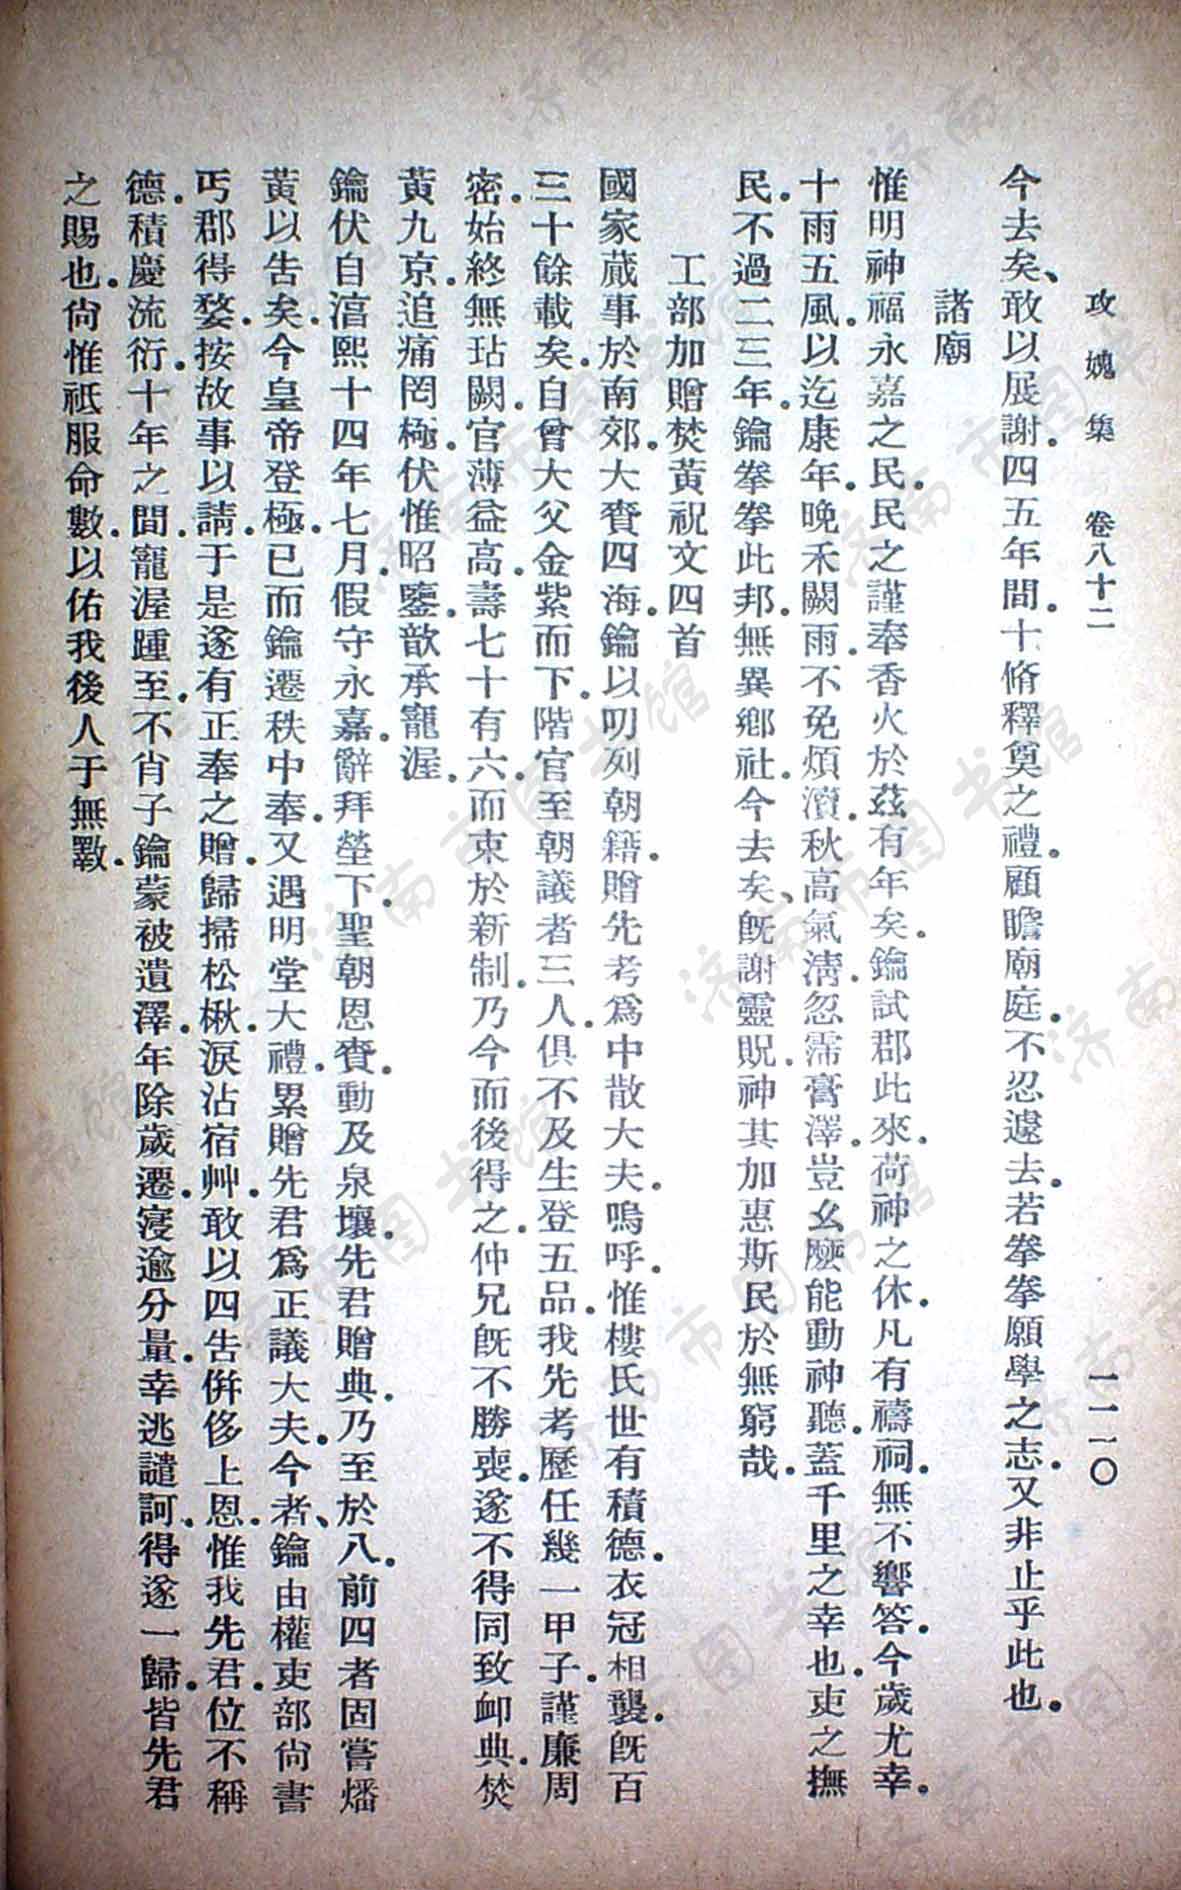 攻媿集　卷八十二　一一一〇
今去矣、敢以展謝。四五年間。十脩釋奠之禮。顧瞻廟庭。不忍遽去。若拳拳願學之志。又非止乎此也。
諸廟
惟明神福永嘉之民。民之謹奉香火於茲有年矣。鑰試郡此來。荷神之休。凡有禱祠。無不響答。今歲尤幸。
十雨五風。以迄康年。晚禾闕雨。不免煩瀆。秋高氣淸。忽霈膏澤。豈幺麼能動神聽。蓋千里之幸也。吏之撫
民。不過二三年。鑰拳拳此邦。無異鄉社。今去矣、旣謝靈貺。神其加惠斯民於無窮哉。
工部加贈焚黃祝文四首
國家蕆事於南郊。大賚四海。鑰以叨列朝籍。贈先考爲中散大夫。嗚呼。惟樓氏世有積德。衣冠相襲。旣百
三十餘載矣。自曾大父金紫而下。階官至朝議者三人。俱不及生登五品。我先考歷任幾一甲子。謹廉周
密。始終無玷闕。官薄益高。壽七十有六。而束於新制。乃今而後得之。仲兄旣不勝喪。遂不得同致卹典。焚
黃九京。追痛罔極。伏惟昭鑒。歆承寵渥。
鑰伏自淳熙十四年七月。假守永嘉。辭拜塋下。聖朝恩賚。動及泉壤。先君贈典。乃至於八。前四者固嘗燔
黃以告矣。今皇帝登極。已而鑰遷秩中奉。又遇明堂大禮。累贈先君爲正議大夫。今者、鑰由權吏部尙書
丐郡得婺。按故事以請。于是遂有正奉之贈。歸掃松楸。淚沾宿艸。敢以四告併侈上恩。惟我先君。位不稱
德。積慶流衍。十年之間。寵渥踵至。不肖子鑰。蒙被遺澤。年除歲遷。寖逾分量。幸逃譴訶。得遂一歸。皆先君
之賜也。尙惟祗服命數。以佑我後人于無斁。